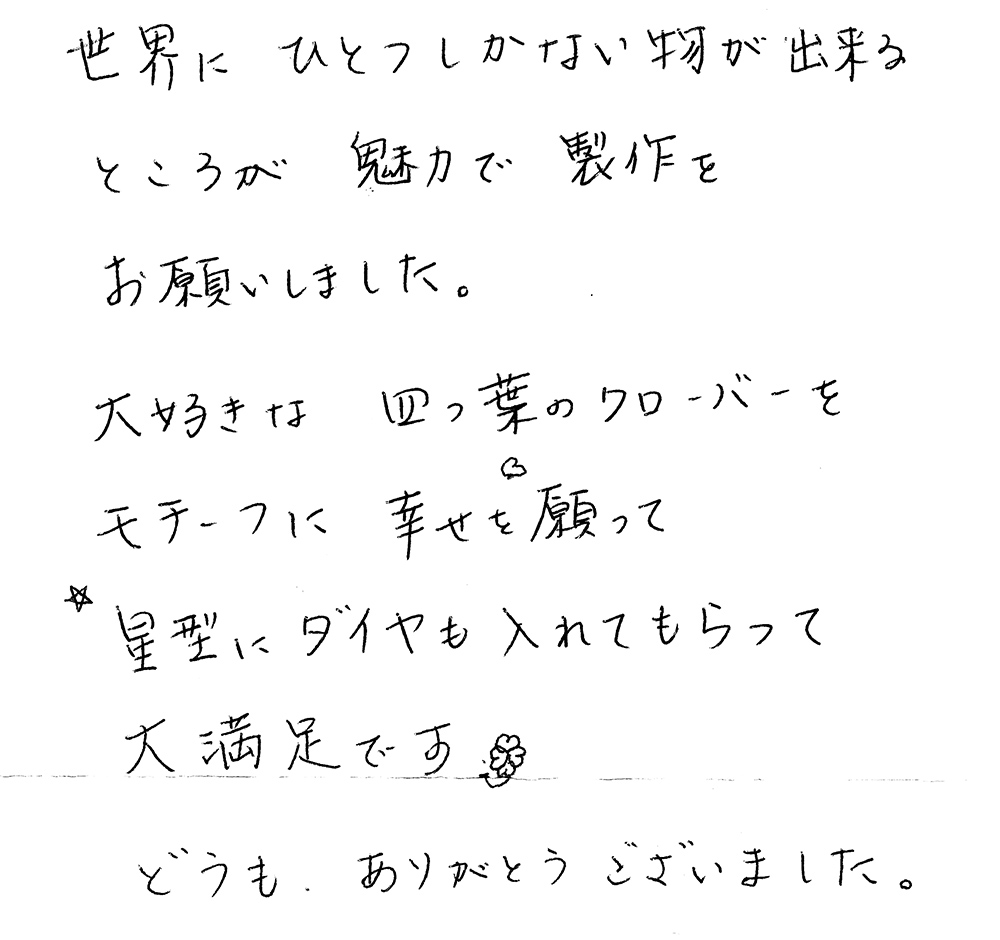 世界に ひとつしかない物が出来る
ところが 魅力で 製作を
お願いしました。
大好きな 四つ葉のクローバーを
モチーフに 幸せを願って
☆星型にダイヤも入れてもらって
大満足です
どうも. ありがとうございました。